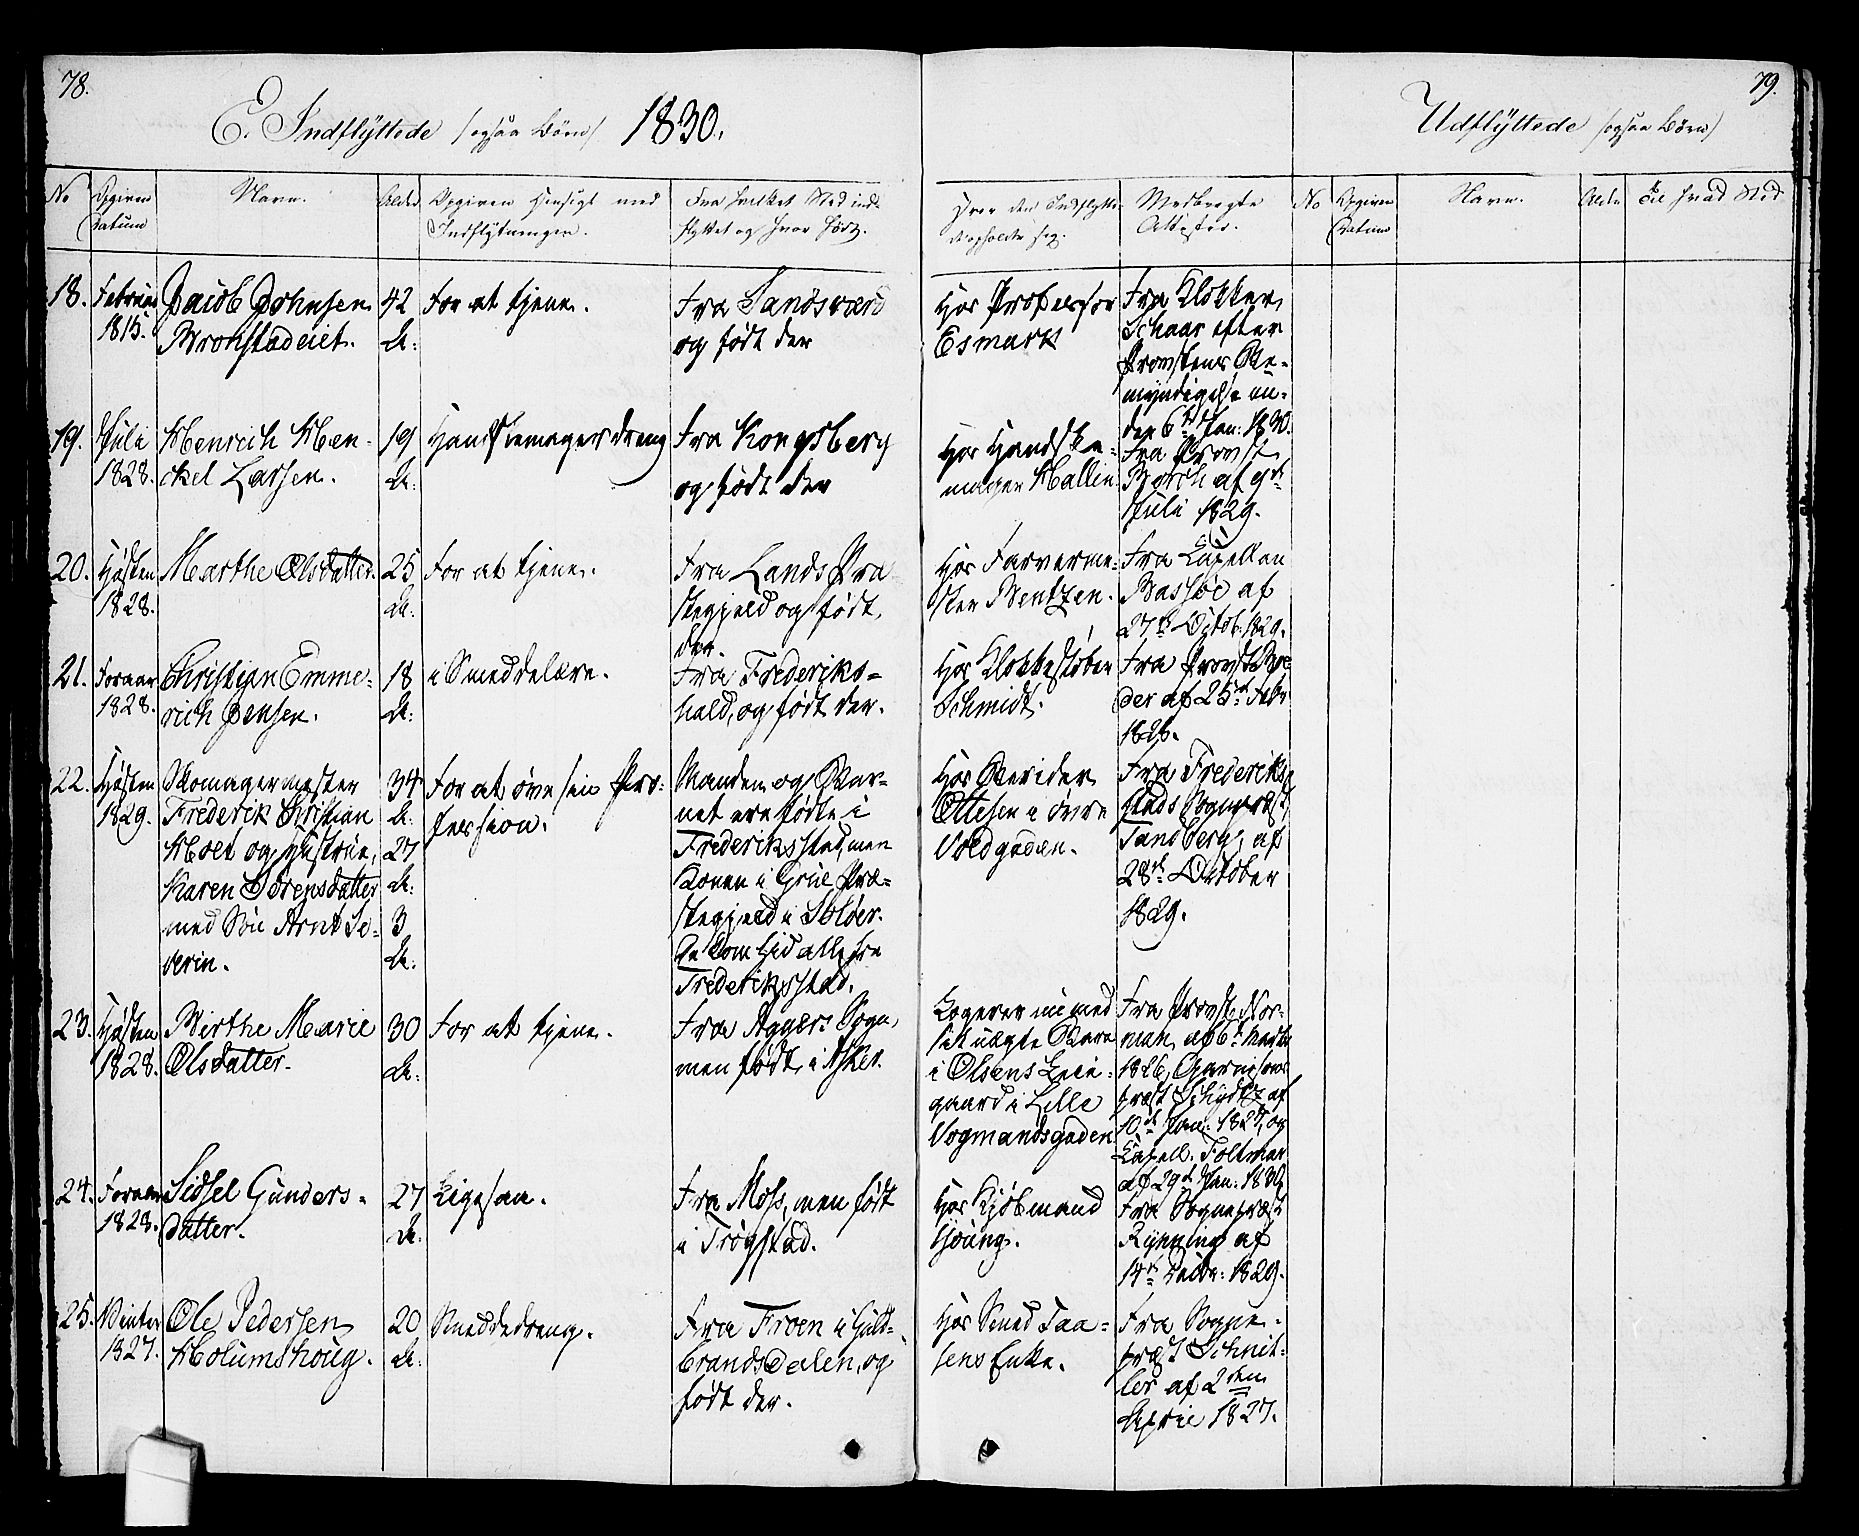 78.
E. Indflyttede /ogsaa Børn/ 1830.
No
Opgiven Datum
Navn.
Alder
Opgiven Hensigt med Indflytningen.
Fra hvilket Sted indflyttet og hvor født.
Hvor den Indflyttede opholder sig.
Medbragte Attester.
18. Februar 1815.
Jacob Johnsen
42
For at tjene.
Fra Sandsværd
og født der
Hos Professor
Esmark
Fra Klokker
Schaar efter
Provstens Be-
myndigelse un-
der 6te Jan: 1830.
19. Juli 1828.
Henrich Hen-
ckel Larsen.
19
Handskemagerdreng
Fra Kongsberg
og født der
Hos Handske-
mager Hallin
Fra Provst
Borch af 9de
Juli 1829.
20. Høsten 1828.
Marthe Olsdatter.
25
For at tjene.
Fra Lands Præ-
stegjeld og født
der.
Hos Farverme-
ster Bentzen.
Fra Capellan
Bassøe af
27de Octob: 1829.
21. Foraar 1828.
Christian Emme-
rich Jensen.
18
i Smeddelære.
Fra Frederiks-
hald, og født der.
Hos Klokkestøber
Schmidt.
Fra Provst
af 25de Febr
1828.
22. Høsten 1829.
Skomagermester
Frederik Christian
Hoel og Hustrue,
Karen Sørensdatter
med Søn Arnt Se-
verin.
34
27
3
For at øve sin Pro-
fession.
Manden og Bar-
net ere fødte i
Frederiksstad, men
Konen i Grue Præ-
stegjeld i Soløer.
De kom hid alle fra
Frederiksstad.
Hos Berider
Ottesen i øvre
Voldgaden.
Fra Frederiks-
stads Sognepræst
Tandberg, af
28de October
1829.
23. Høsten 1828.
Birthe Marie
Olsdatter.
30
For at tjene.
Fra Aggers Sogn,
men født i Asker.
Logerer nu med
sit uægte Barn
i Olsens Leie-
gaard i Lille
Vognmandsgaden
Fra Provst Nor-
man af 6te Marts
1826, Garnisons
præst Schydtz af
10de Jan: 1827, og
Capell: Foltmar
af 29de Jan: 1830
24. Foraar 1828.
Sidsel Gunders-
datter.
27
Ligesaa.
Fra Moss, men født
i Trøgstad.
Hos Kjøbmand
Young.
Fra Sognepræst
Rynning af
14de Decbr: 1829.
25. Vinter 1827.
Ole Pedersen
Holumshoug.
20
Smeddedreng.
Fra Froen i Guld-
brandsdalen, og
født der.
Hos Smed Taa-
sens Enke.
Fra Sogne-
præst Schnit-
ler af 2den
April 1827.
79.
Udflyttede /ogsaa Børn/
No
Opgiven Datum
Navn.
Alder
Til hvad Sted